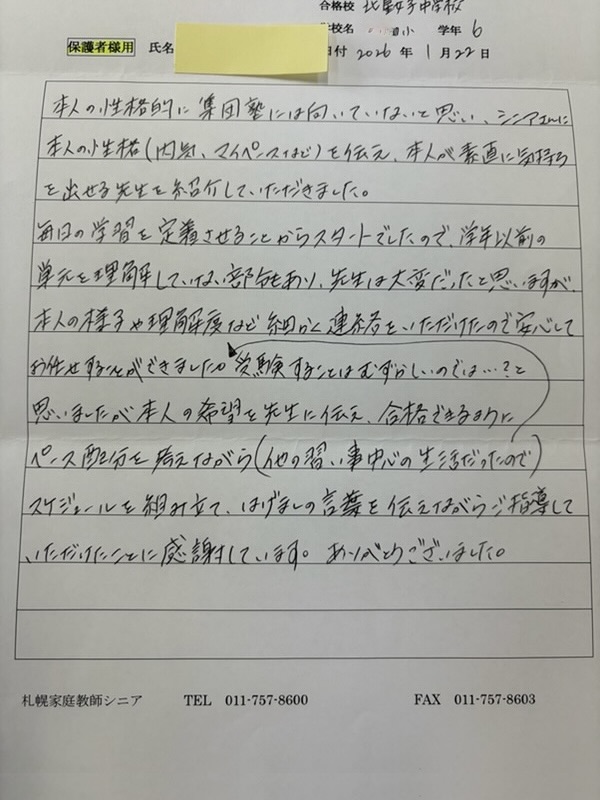 合格校 北星女子中学校
学校名 小 学年 6
保護者様用 氏名 日付 2026 年 1 月 22 日
本人の性格的に集団塾には向いていないと思い、シニアさんに
本人の性格(内気、マイペースなど)を伝え、本人が素直に気持ち
を出せる先生を紹介していただきました。
毎日の学習を定着させることからスタートでしたので、学年以前の
単元を理解していない部分もあり、先生は大変だったと思いますが、
本人の様子や理解度など細かく連絡をいただけたので安心して
お任せすることができました。受験することはむずかしいのでは…?と
思いましたが本人の希望を先生に伝え、合格できるように
ペース配分を考えながら(他の習い事中心の生活だったので)
スケジュールを組み立て、はげましの言葉を伝えながらご指導して
いただけたことに感謝しています。ありがとうございました。
札幌家庭教師シニア TEL 011-757-8600 FAX 011-757-8603